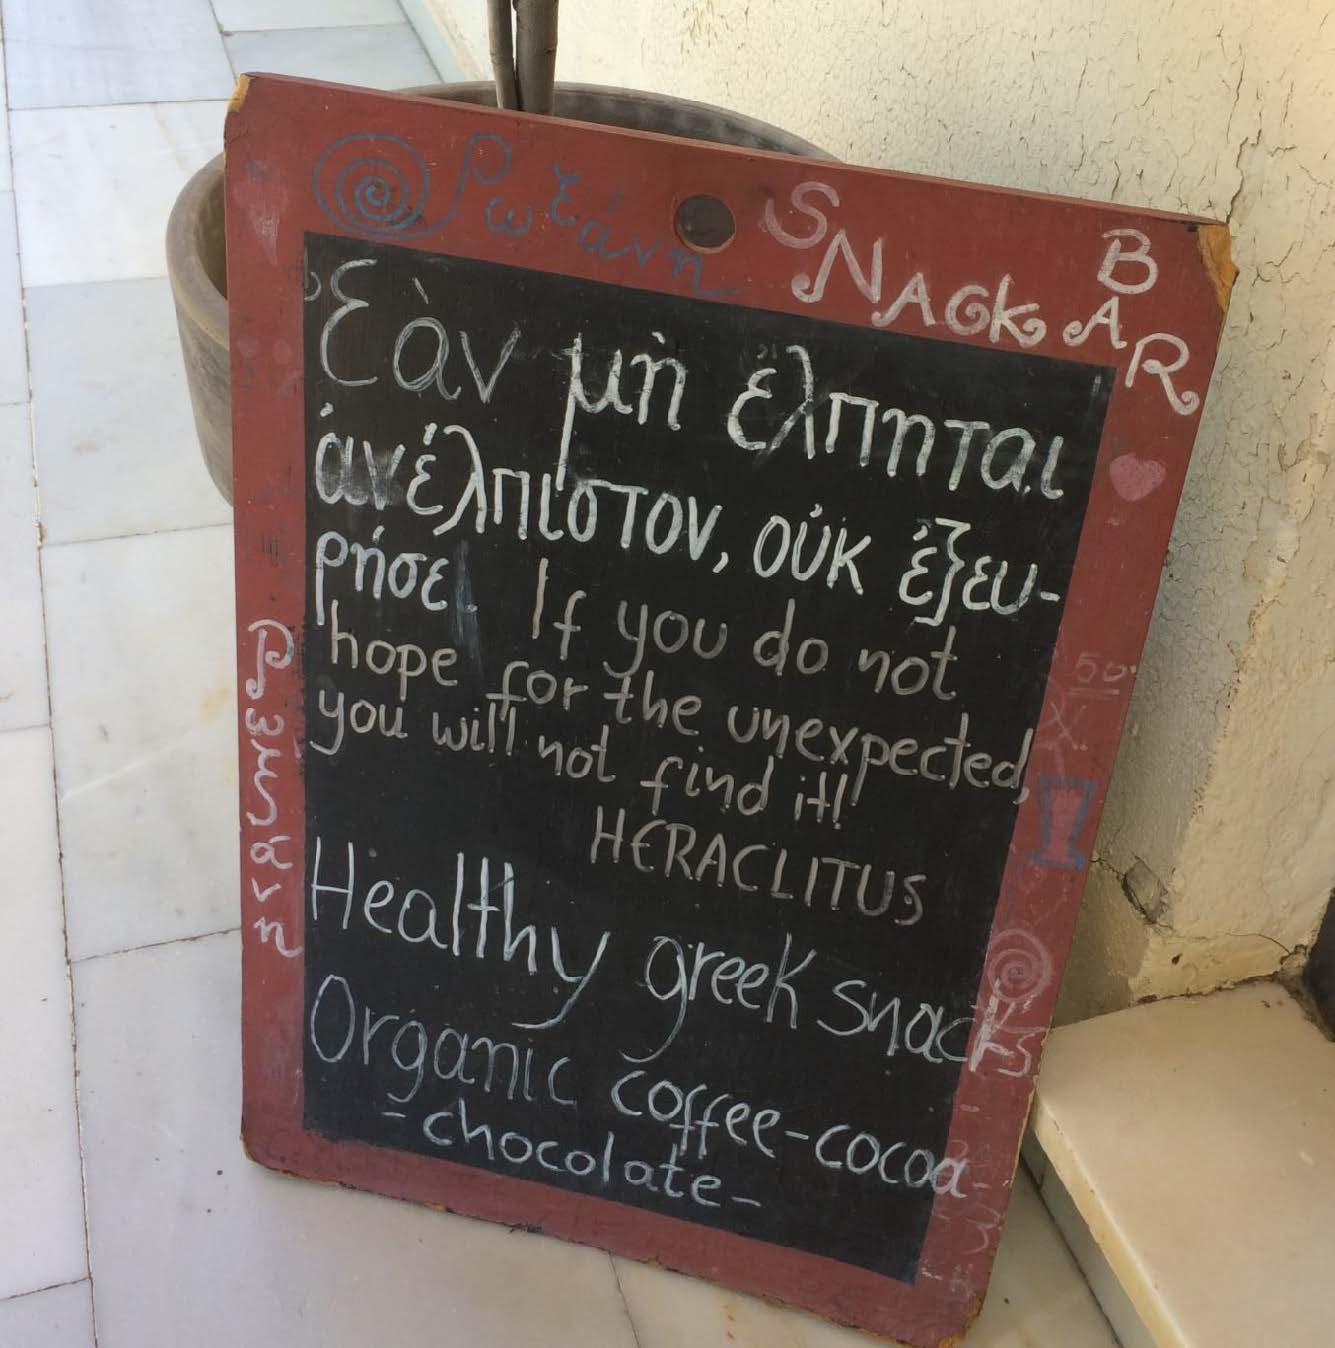 Ρωξάνη
SNACK BAR
Ἐὰν μὴ ἔλπηται
ἀνέλπιστον, οὐκ ἐξευ-
ρήσει If you do not
hope for the unexpected,
you will not find it!
HERACLITUS
Healthy greek snacks
Organic coffee-cocoa-
-chocolate-
Ρωξάνη
50